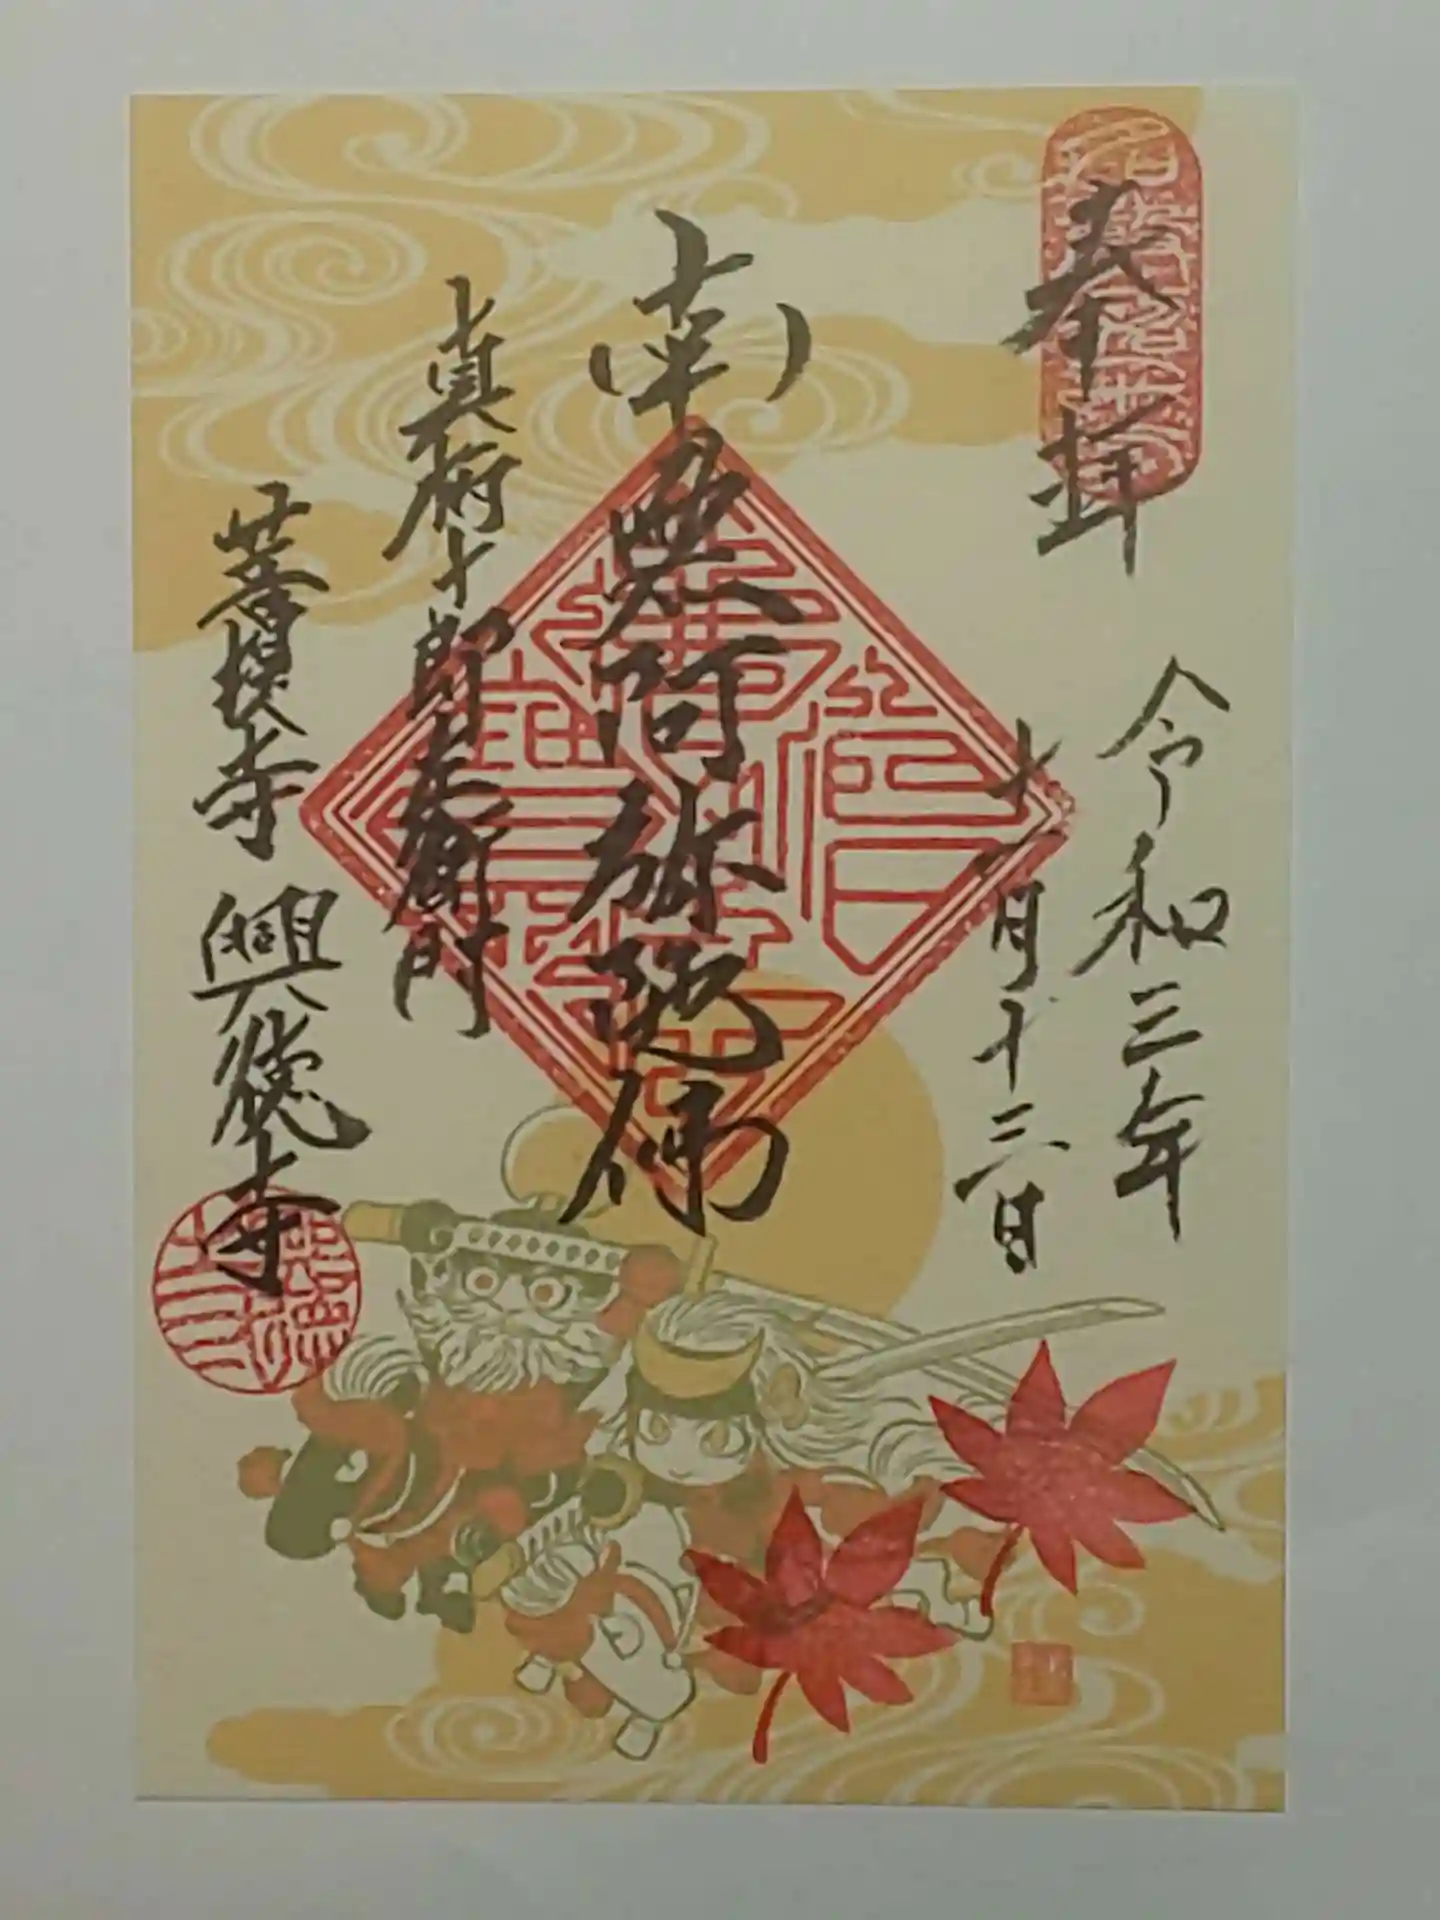 奉拝
令和三年
十一月十三日
南無阿弥陀佛
真柄十郎左衛門
菩提寺 興徳寺